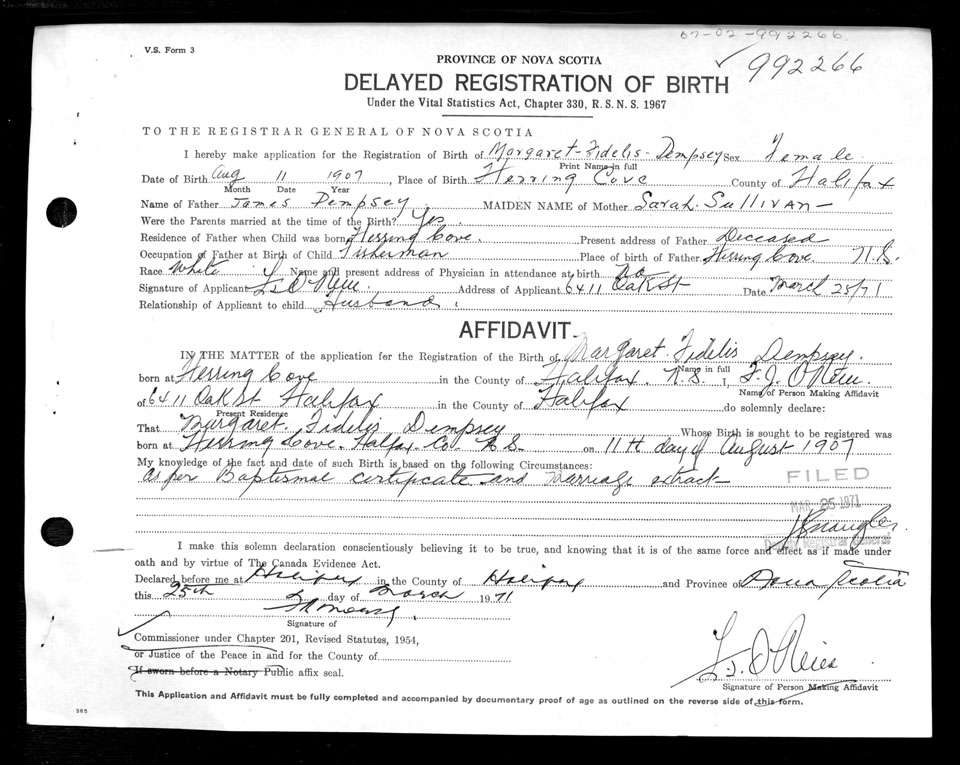 67-02-992266.
V.S. Form 3
PROVINCE OF NOVA SCOTIA
✓ 992266
DELAYED REGISTRATION OF BIRTH
Under the Vital Statistics Act, Chapter 330, R.S.N.S. 1967
TO THE REGISTRAR GENERAL OF NOVA SCOTIA
I hereby make application for the Registration of Birth of Margaret-Fidelis-Dempsey Sex Female
Print Name in full
Date of Birth Aug 11 1907, Place of Birth Herring Cove County of Halifax
Month Date Year
Name of Father James Dempsey. MAIDEN NAME of Mother Sarah. Sullivan-
Were the Parents married at the time of the Birth? Yes.
Residence of Father when Child was born Herring Cove. Present address of Father Deceased
Occupation of Father at Birth of Child Fisherman Place of birth of Father Herring Cove. N.S.
Race White Name and present address of Physician in attendance at birth No
Signature of Applicant Address of Applicant 6411 Oak St Date March 25/71
Relationship of Applicant to child Husband.
AFFIDAVIT
IN THE MATTER of the application for the Registration of the Birth of Margaret. Fidelis Dempsey.
Name in full
born at Herring Cove in the County of Halifax. N.S. I, F.J. O'Neill.
Name of Person Making Affidavit
of 6411 Oak St Halifax in the County of Halifax do solemnly declare:
Present Residence
That Margaret. Fidelis Dempsey Whose Birth is sought to be registered was
born at Herring Cove. Halfax Co. N.S. on 11th day of August 1907
My knowledge of the fact and date of such Birth is based on the following Circumstances:
as per Baptismal certificate and Marriage extract-
FILED
MAR 25 1971
Deputy Registrar General
I make this solemn declaration conscientiously believing it to be true, and knowing that it is of the same force and effect as if made under
oath and by virtue of The Canada Evidence Act.
Declared before me at Halifax in the County of Halifax and Province of Nova Scotia
this 25th day of March 1971
Signature of
Commissioner under Chapter 201, Revised Statutes, 1954,
or Justice of the Peace in and for the County of
If sworn before a Notary Public affix seal.
Signature of Person Making Affidavit
This Application and Affidavit must be fully completed and accompanied by documentary proof of age as outlined on the reverse side of this form.
385